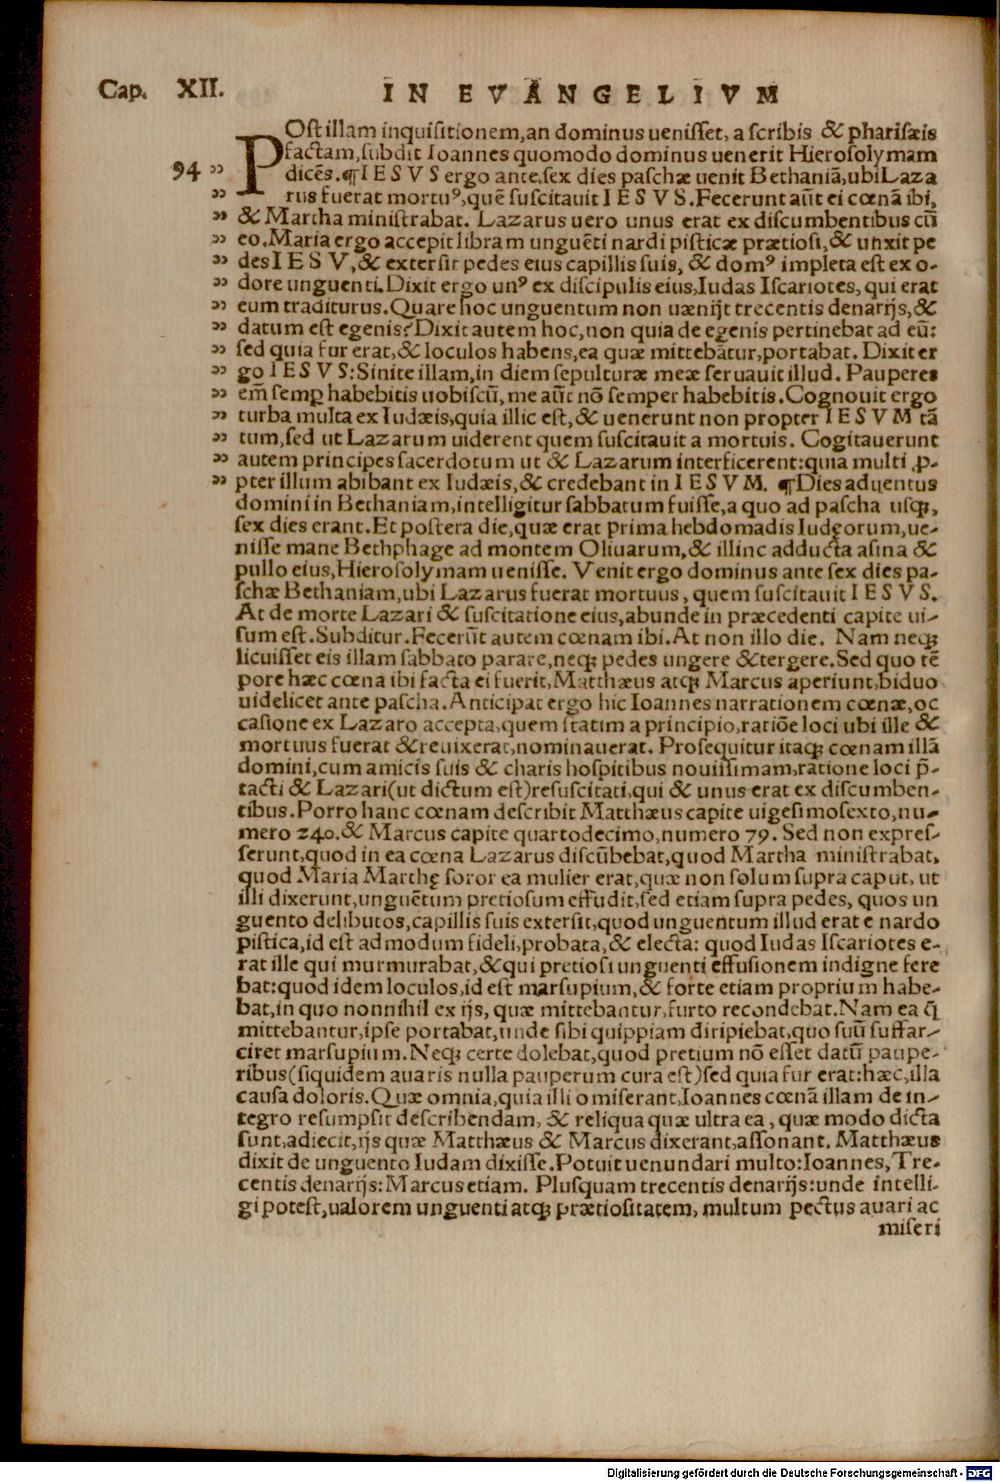 Cap. XII. IN EVANGELIVM
POst illam inquisitionem, an dominus uenisset, a scribis & pharisæis
factam, subdit Ioannes quomodo dominus uenerit Hierosolymam
94 ” dicēs. ¶ IESVS ergo ante sex dies paschæ uenit Bethaniā, ubi Laza
” rus fuerat mortuꝰ, quē suscitauit IESVS. Fecerunt aūt ei cœnā ibi,
” & Martha ministrabat. Lazarus uero unus erat ex discumbentibus cū
” eo. Maria ergo accepit libram unguēti nardi pisticæ prætiosi, & unxit pe
” des IESV, & extersit pedes eius capillis suis, & domꝰ impleta est ex o-
” dore unguenti. Dixit ergo unꝰ ex discipulis eius, Iudas Iscariotes, qui erat
” eum traditurus. Quare hoc unguentum non uænijt trecentis denarijs, &
” datum est egenis? Dixit autem hoc, non quia de egenis pertinebat ad eū:
” sed quia fur erat, & loculos habens, ea quæ mittebātur, portabat. Dixit er
” go IESVS: Sinite illam, in diem sepulturæ meæ seruauit illud. Pauperes
” em̄ semꝑ habebitis uobiscū, me aūt nō semper habebitis. Cognouit ergo
” turba multa ex Iudæis, quia illic est, & uenerunt non propter IESVM tā
” tum, sed ut Lazarum uiderent quem suscitauit a mortuis. Cogitauerunt
” autem principes sacerdotum ut & Lazarum interficerent: quia multi ꝓ-
” pter illum abibant ex Iudæis, & credebant in IESVM. ¶ Dies aduentus
domini in Bethaniam, intelligitur sabbatum fuisse, a quo ad pascha usqꝫ,
sex dies erant. Et postera die, quæ erat prima hebdomadis Iudęorum, ue-
nisse mane Bethphage ad montem Oliuarum, & illinc adducta asina &
pullo eius, Hierosolymam uenisse. Venit ergo dominus ante sex dies pa-
schæ Bethaniam, ubi Lazarus fuerat mortuus, quem suscitauit IESVS.
At de morte Lazari & suscitatione eius, abunde in præcedenti capite ui-
sum est. Subditur. Fecerūt autem cœnam ibi. At non illo die. Nam neqꝫ
licuisset eis illam sabbato parare, neqꝫ pedes ungere & tergere. Sed quo tē
pore hæc cœna ibi facta ei fuerit, Matthæus atqꝫ Marcus aperiunt, biduo
uidelicet ante pascha. Anticipat ergo hic Ioannes narrationem cœnæ, oc
casione ex Lazaro accepta, quem statim a principio, ratiōe loci ubi ille &
mortuus fuerat & reuixerat, nominauerat. Prosequitur itaqꝫ cœnam illā
domini, cum amicis suis & charis hospitibus nouissimam, ratione loci p̄-
tacti & Lazari (ut dictum est) resuscitati, qui & unus erat ex discumben-
tibus. Porro hanc cœnam describit Matthæus capite uigesimosexto, nu-
mero 240. & Marcus capite quartodecimo, numero 79. Sed non expres-
serunt, quod in ea cœna Lazarus discūbebat, quod Martha ministrabat,
quod Maria Marthę soror ea mulier erat, quæ non solum supra caput, ut
illi dixerunt, unguētum pretiosum effudit, sed etiam supra pedes, quos un
guento delibutos, capillis suis extersit, quod unguentum illud erat e nardo
pistica, id est admodum fideli, probata, & electa: quod Iudas Iscariotes e-
rat ille qui murmurabat, & qui pretiosi unguenti effusionem indigne fere
bat: quod idem loculos, id est marsupium, & forte etiam proprium habe-
bat, in quo nonnihil ex ijs, quæ mittebantur, furto recondebat. Nam ea q̄
mittebantur, ipse portabat, unde sibi quippiam diripiebat, quo suū suffar-
ciret marsupium. Neqꝫ certe dolebat, quod pretium nō esset datū paupe-
ribus (siquidem auaris nulla pauperum cura est) sed quia fur erat: hæc, illa
causa doloris. Quæ omnia, quia illi omiserant, Ioannes cœnā illam de in-
tegro resumpsit describendam, & reliqua quæ ultra ea, quæ modo dicta
sunt, adiecit, ijs quæ Matthæus & Marcus dixerant, assonant. Matthæus
dixit de unguento Iudam dixisse. Potuit uenundari multo: Ioannes, Tre-
centis denarijs: Marcus etiam. Plusquam trecentis denarijs: unde intelli-
gi potest, ualorem unguenti atqꝫ prætiositatem, multum pectus auari ac
miseri
Digitalisierung gefördert durch die Deutsche Forschungsgemeinschaft - DFG